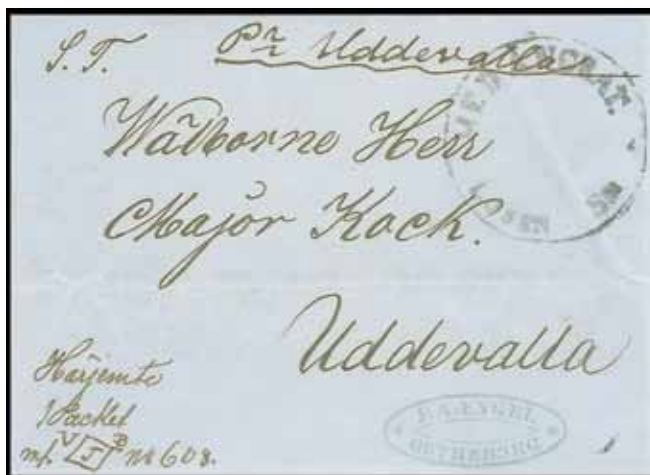 S. T. Pr Uddevalla
Wälborne Herr
Major Kock.
Uddevalla
Härjemte
1 Packet
mf. V J B no 608.
ENGEL
GÖTHEBORG